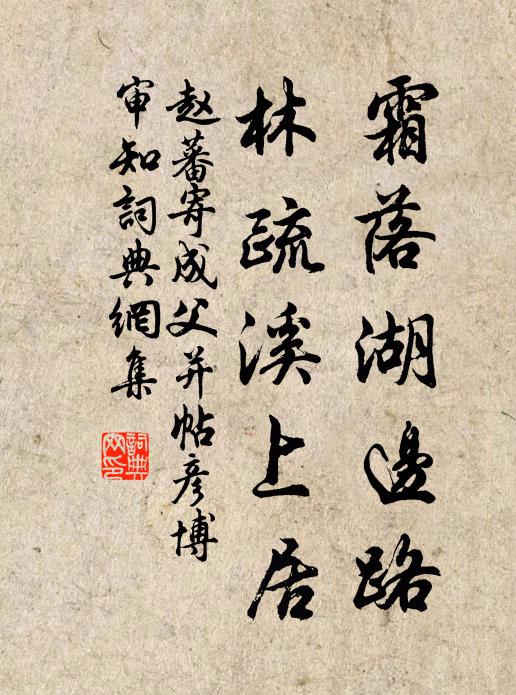 霜落湖邊路
林疏溪上居
赵蕃寄成父并帖彦博
审知詞典網集
詞典
网印